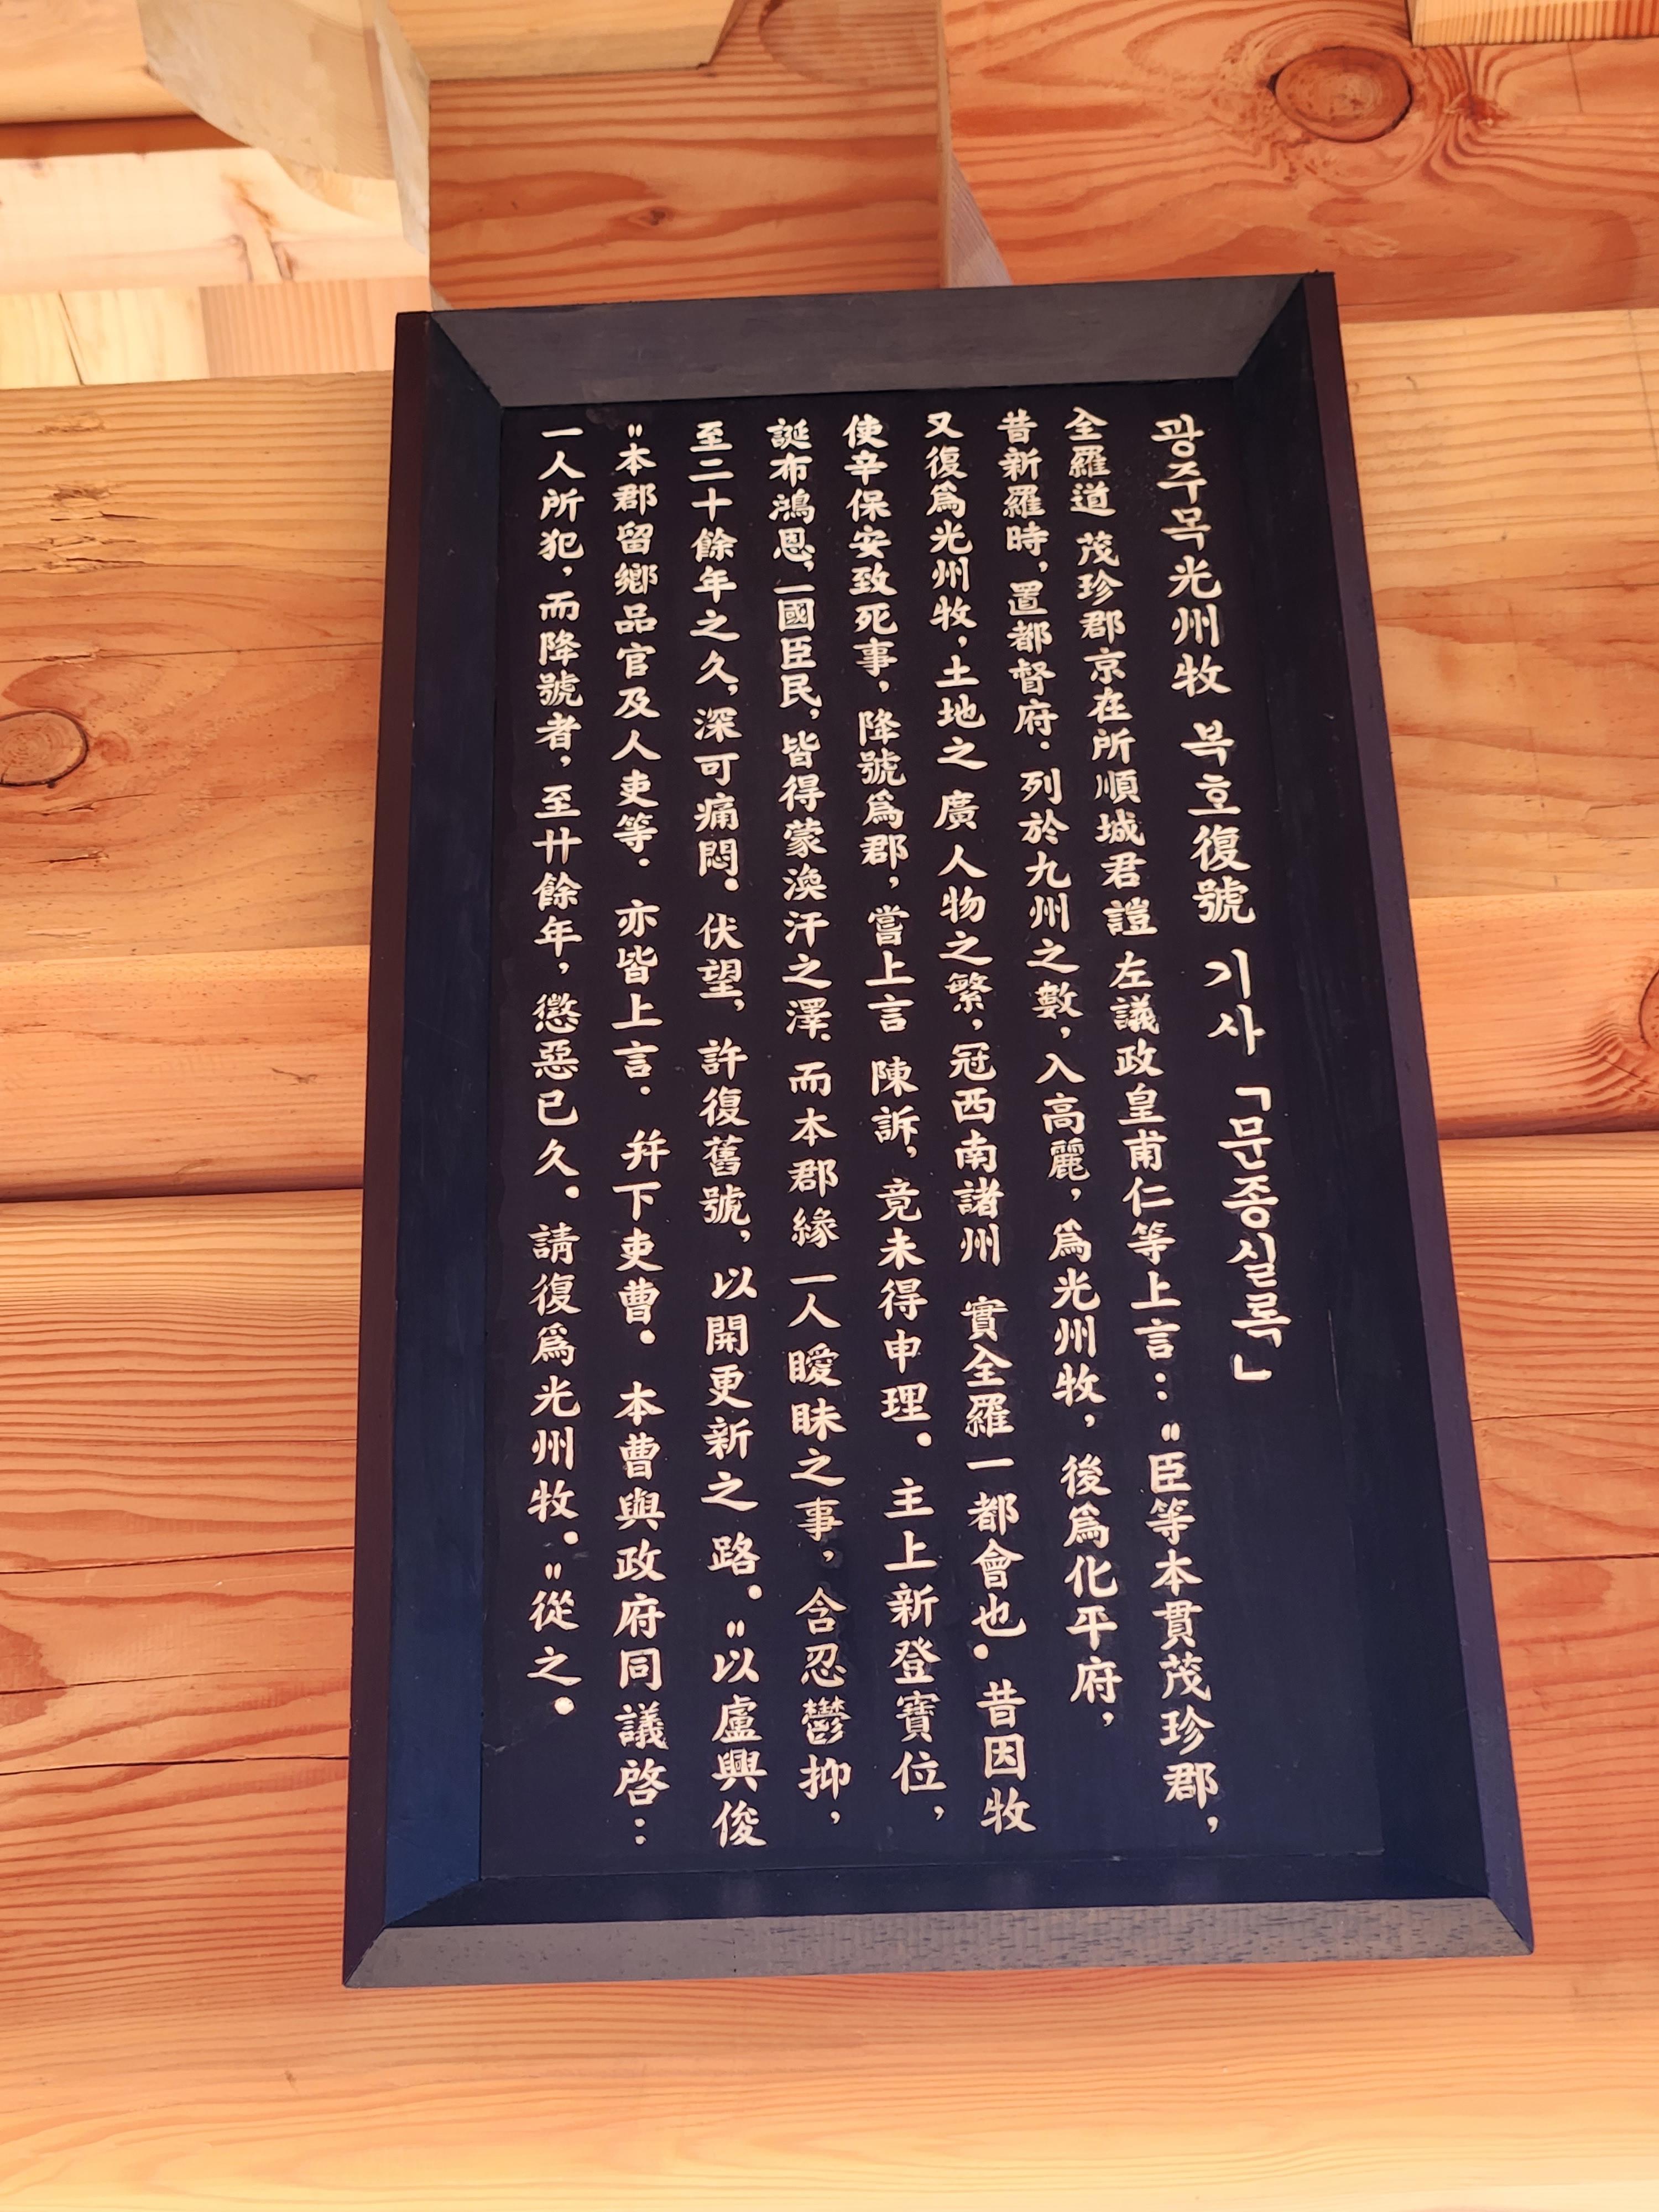 광주목光州牧 복호復號 기사 「문종실록」
全羅道 茂珍郡京在所順城君譿 左議政皇甫仁等上言："臣等本貫茂珍郡,
昔新羅時, 置都督府. 列於九州之數, 入高麗, 爲光州牧, 後爲化平府,
又復爲光州牧, 土地之 廣人物之繁, 冠西南諸州 實全羅一都會也. 昔因牧
使辛保安致死事, 降號爲郡, 嘗上言 陳訴, 竟未得申理. 主上新登寶位,
誕布鴻恩, 一國臣民, 皆得蒙渙汗之澤. 而本郡緣一人曖昧之事, 含忍鬱抑,
至二十餘年之久, 深可痛悶. 伏望, 許復舊號, 以開更新之路. "以盧興俊
"本郡留鄕品官及人吏等. 亦皆上言. 幷下吏曹. 本曹與政府同議啓：
一人所犯, 而降號者, 至卄餘年, 懲惡已久. 請復爲光州牧. "從之.